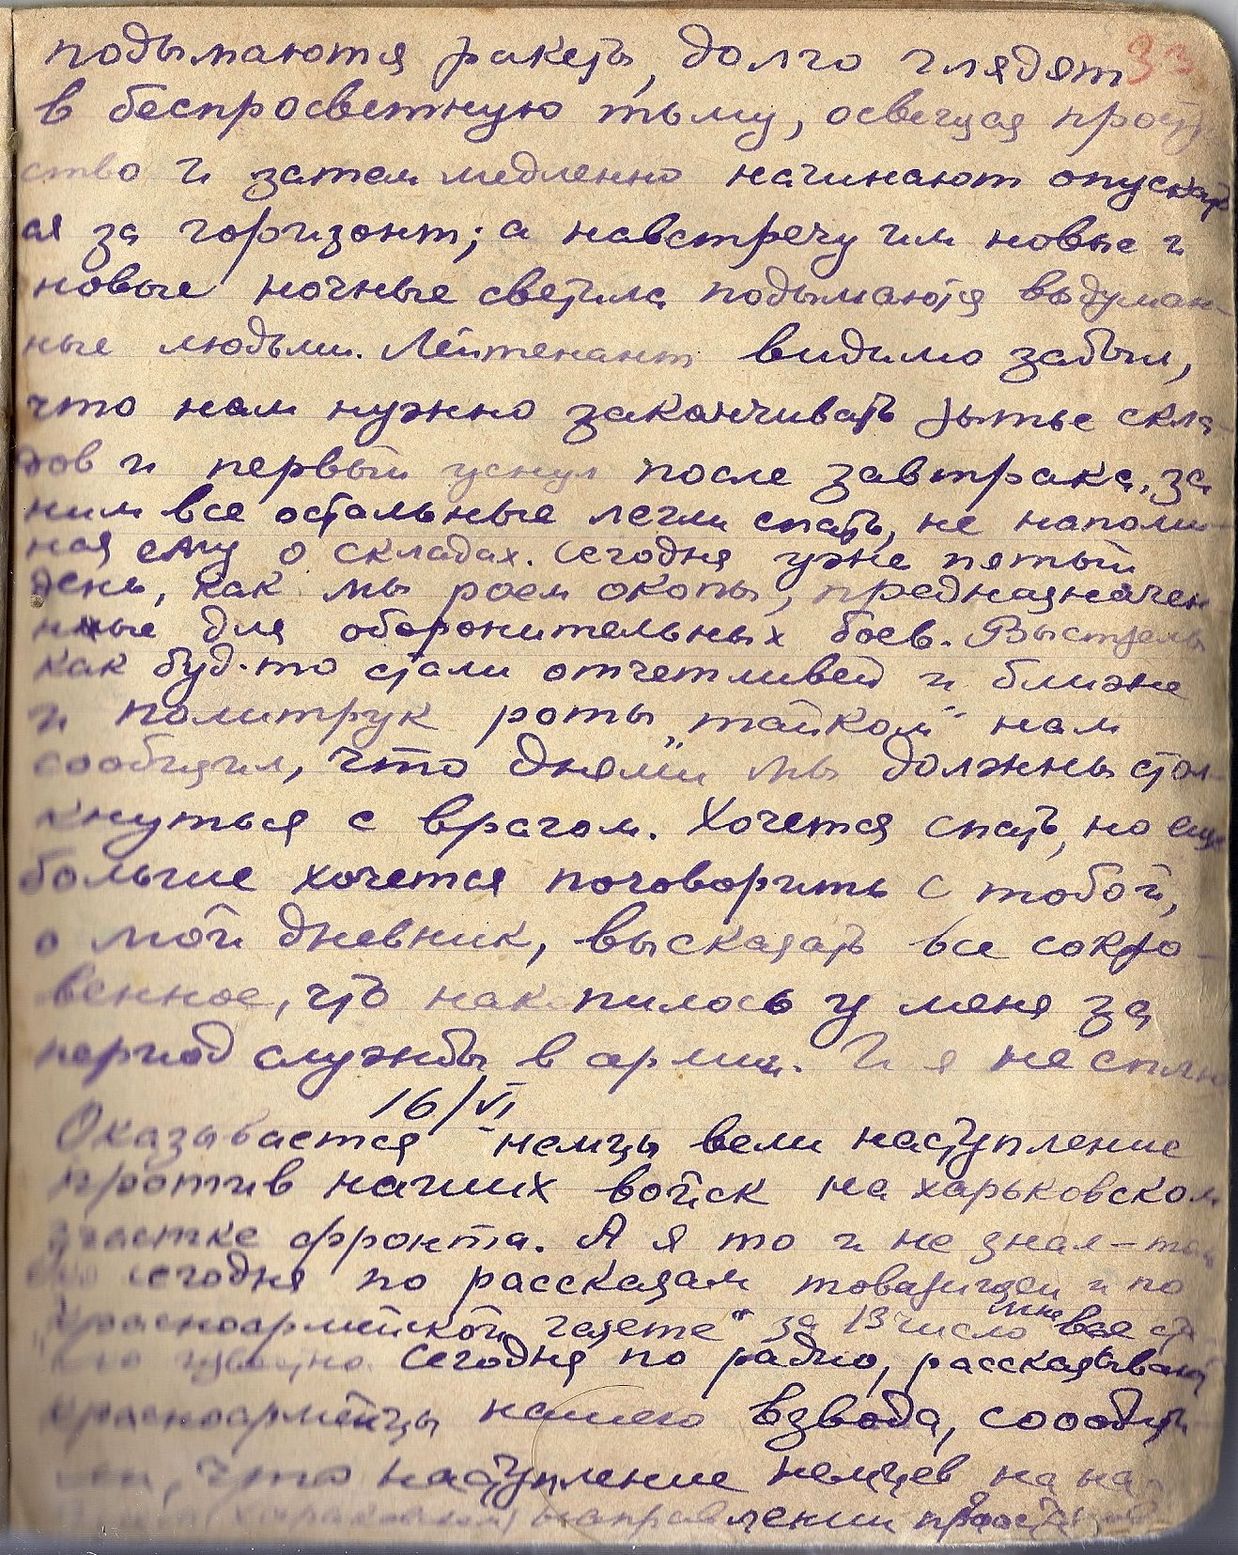 подымаются ракеты, долго глядят 33
в беспросветную тьму, освещая прост
ство и затем медленно начинают опускать
ся за горизонт; а навстречу им новые и
новые ночные светила подымаются выдуман-
ные людьми. Лейтенант видимо забыл,
что нам нужно заканчивать рытье скла-
дов и первый уснул после завтрака, за
ним все остальные легли спать, не напоми-
ная ему о складах. Сегодня уже пятый
день, как мы роем окопы, предназначен
нные для оборонительных боев. Выстрелы
как буд-то стали отчетливей и ближе
и политрук роты „тайком" нам
сообщил, что днями мы должны стол-
кнуться с врагом. Хочется спать, но еще
больше хочется поговорить с тобой,
о мой дневник, высказать все сокро-
венное, что накопилось у меня за
период службы в армии. И я не сплю
16/VI
Оказывается немцы вели наступление
против наших войск на харьковском
участке фронта. А я то и не знал-
сегодня по рассказам товарищей и по
„Красноармейской газете" за 13 число мне все ст
Сегодня по радио, рассказывают
красноармейцы нашего взвода, сообщи
что наступление немцев на
направлении